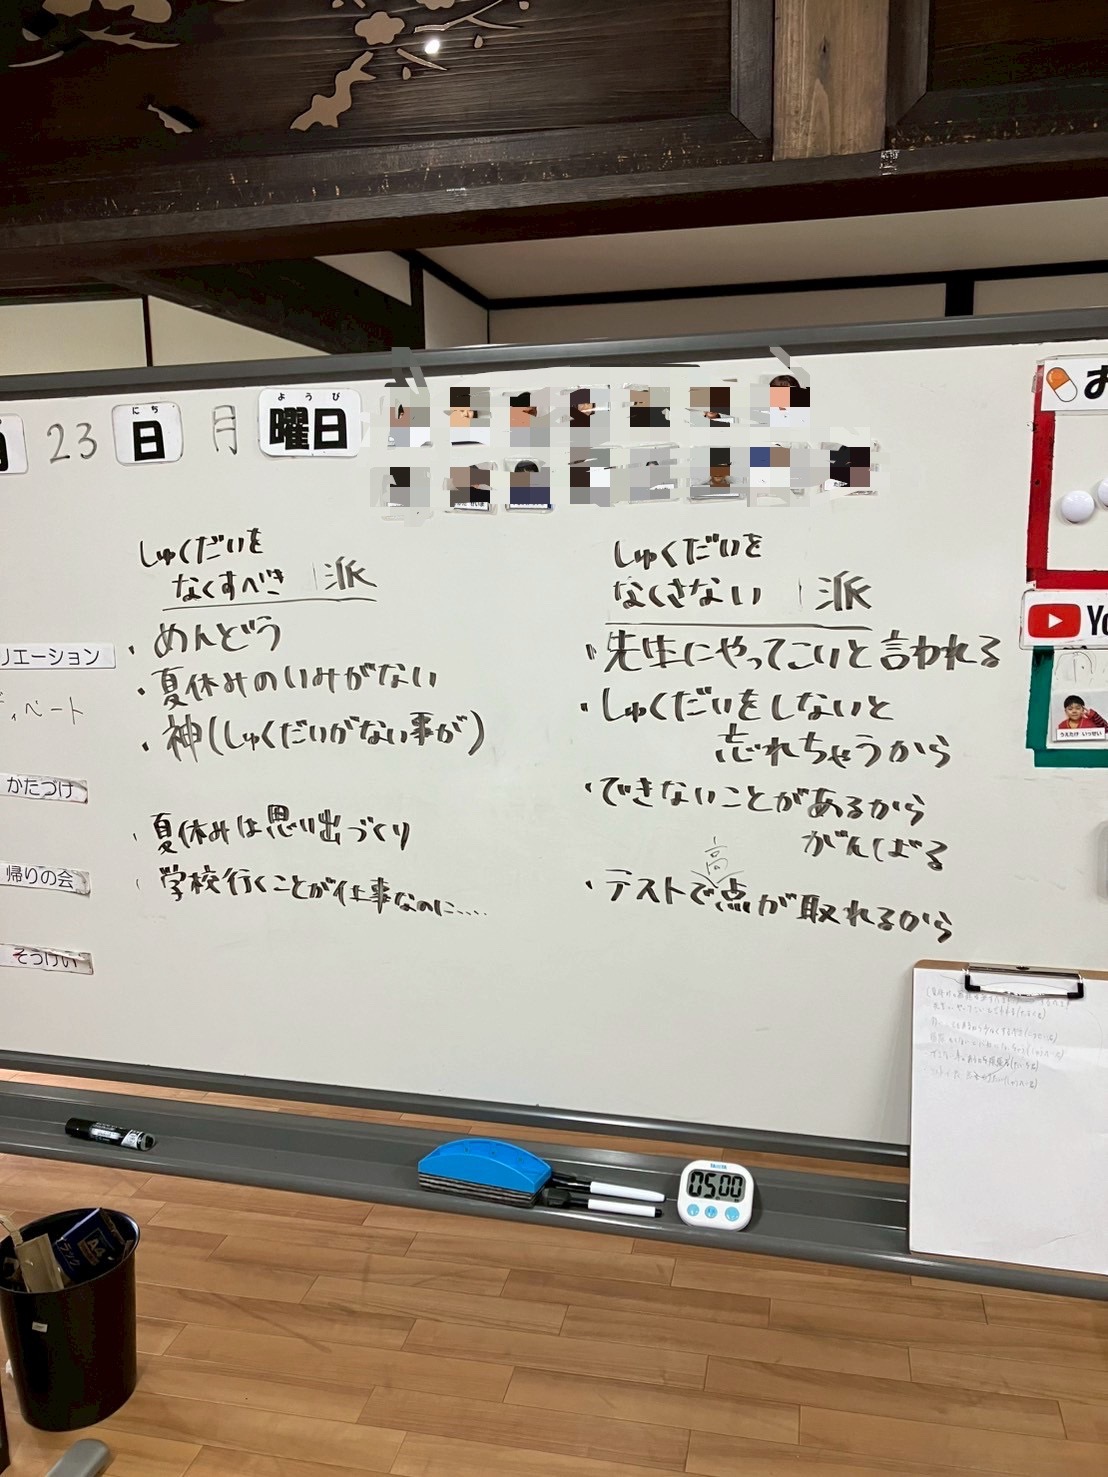 23 日 月 曜日
にち
ようび
お
しゅくだいを
なくすべき 派
・めんどう
・夏休みのいみがない
・神(しゅくだいがない事が)
・夏休みは思い出づくり
・学校行くことが仕事なのに……
しゅくだいを
なくさない 派
・先生にやってこいと言われる
・しゅくだいをしないと
忘れちゃうから
・できないことがあるから
がんばる
・テストで高点が取れるから
リエーション
ディベート
かたづけ
帰りの会
そうげい
うえたけ いっせい
05 00
A4